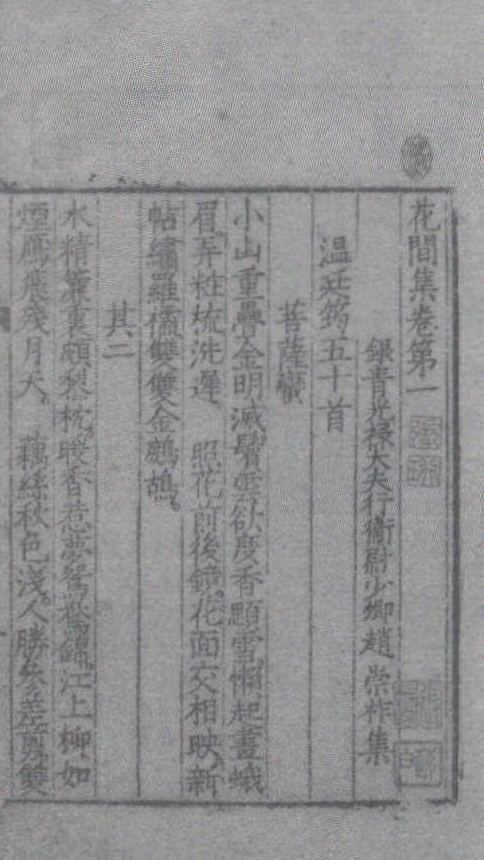 花間集卷第一
銀青光祿大夫行衛尉少卿趙 崇祚 集
温廷筠五十首
菩薩蠻
小山重疊金明滅鬢雲欲度香顋雪懶起畫蛾
眉弄粧梳洗遲 照花前後鏡花面交相映新
帖繡羅襦雙雙金鷓鴣
其二
水精簾裏頗黎枕暖香惹夢鴛鴦錦江上柳如
煙鴈飛殘月天 藕絲秋色淺人勝參差剪雙